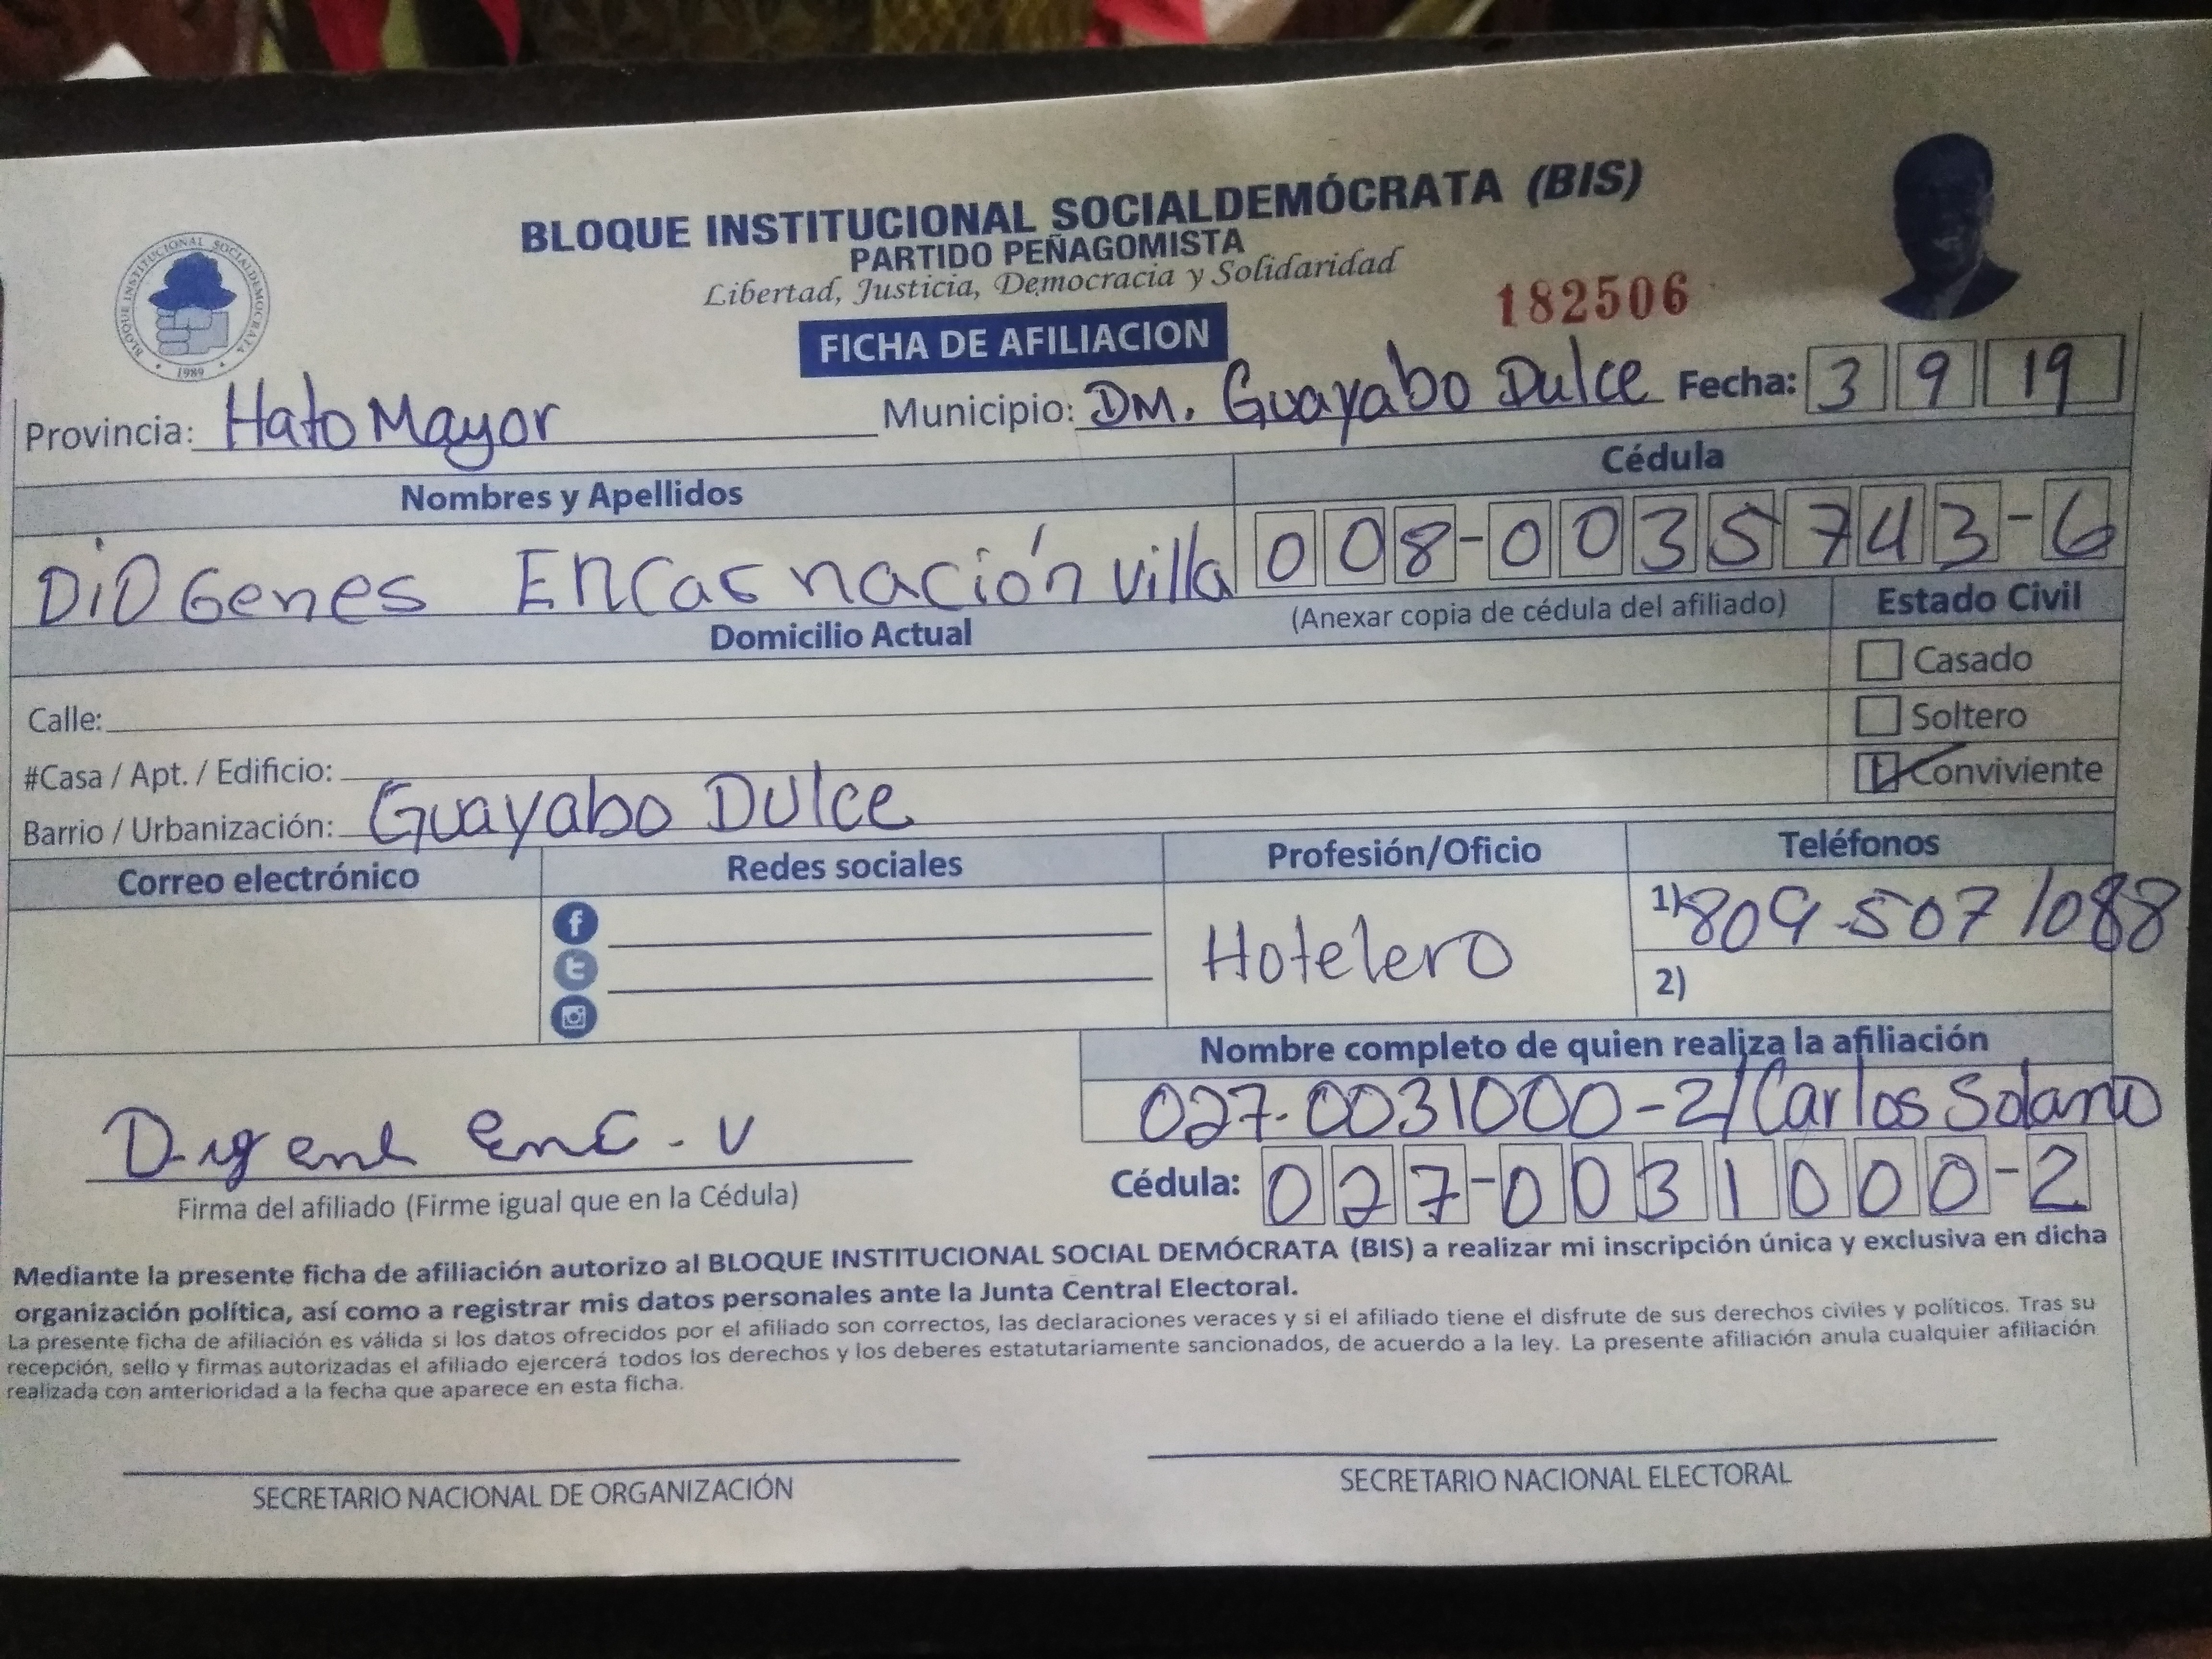 BLOQUE INSTITUCIONAL SOCIALDEMÓCRATA (BIS)
PARTIDO PEÑAGOMISTA
Libertad, Justicia, Democracia y Solidaridad
182506
FICHA DE AFILIACION
BLOQUE INSTITUCIONAL SOCIALDEMOCRATA
1989
Provincia: Hato Mayor Municipio: DM. Guayabo Dulce Fecha: 3 9 19
Nombres y Apellidos Cédula
DiOGenes Encarnación Villa 008-0035743-6
(Anexar copia de cédula del afiliado) Estado Civil
Domicilio Actual
Casado
Calle: Soltero
#Casa / Apt. / Edificio: Conviviente
Barrio / Urbanización: Guayabo Dulce
Correo electrónico Redes sociales Profesión/Oficio Teléfonos
1) 809-507 1088
Hotelero
2)
Nombre completo de quien realiza la afiliación
027-0031000-2/Carlos Solano
enc. v
Cédula: 027-0031000-2
Firma del afiliado (Firme igual que en la Cédula)
Mediante la presente ficha de afiliación autorizo al BLOQUE INSTITUCIONAL SOCIAL DEMÓCRATA (BIS) a realizar mi inscripción única y exclusiva en dicha
organización política, así como a registrar mis datos personales ante la Junta Central Electoral.
La presente ficha de afiliación es válida si los datos ofrecidos por el afiliado son correctos, las declaraciones veraces y si el afiliado tiene el disfrute de sus derechos civiles y políticos. Tras su
recepción, sello y firmas autorizadas el afiliado ejercerá todos los derechos y los deberes estatutariamente sancionados, de acuerdo a la ley. La presente afiliación anula cualquier afiliación
realizada con anterioridad a la fecha que aparece en esta ficha.
SECRETARIO NACIONAL DE ORGANIZACIÓN SECRETARIO NACIONAL ELECTORAL